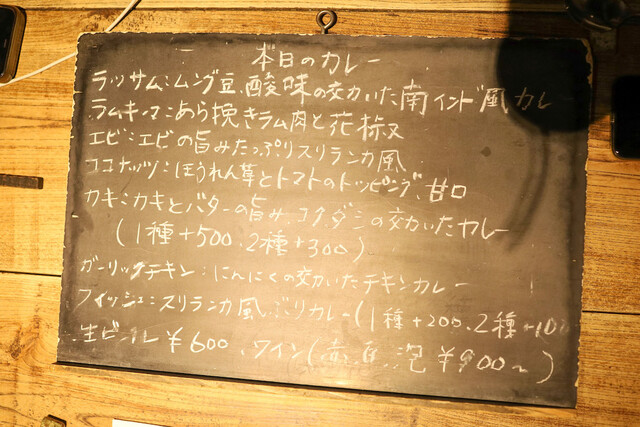 本日のカレー
ラッサム:ムング豆、酸味の効いた南インド風カレー
ラムキーマ:あら挽きラム肉と花椒
エビ:エビの旨みたっぷりスリランカ風
ココナッツ:ほうれん草とトマトのトッピング、甘口
カキ:カキとバターの旨み、コク、ダシの効いたカレー
(1種+500、2種+300)
ガーリックチキン:にんにくの効いたチキンカレー
フィッシュ:スリランカ風ぶりカレー(1種+200、2種+100
生ビール¥600、ワイン(赤、白、泡¥900〜)